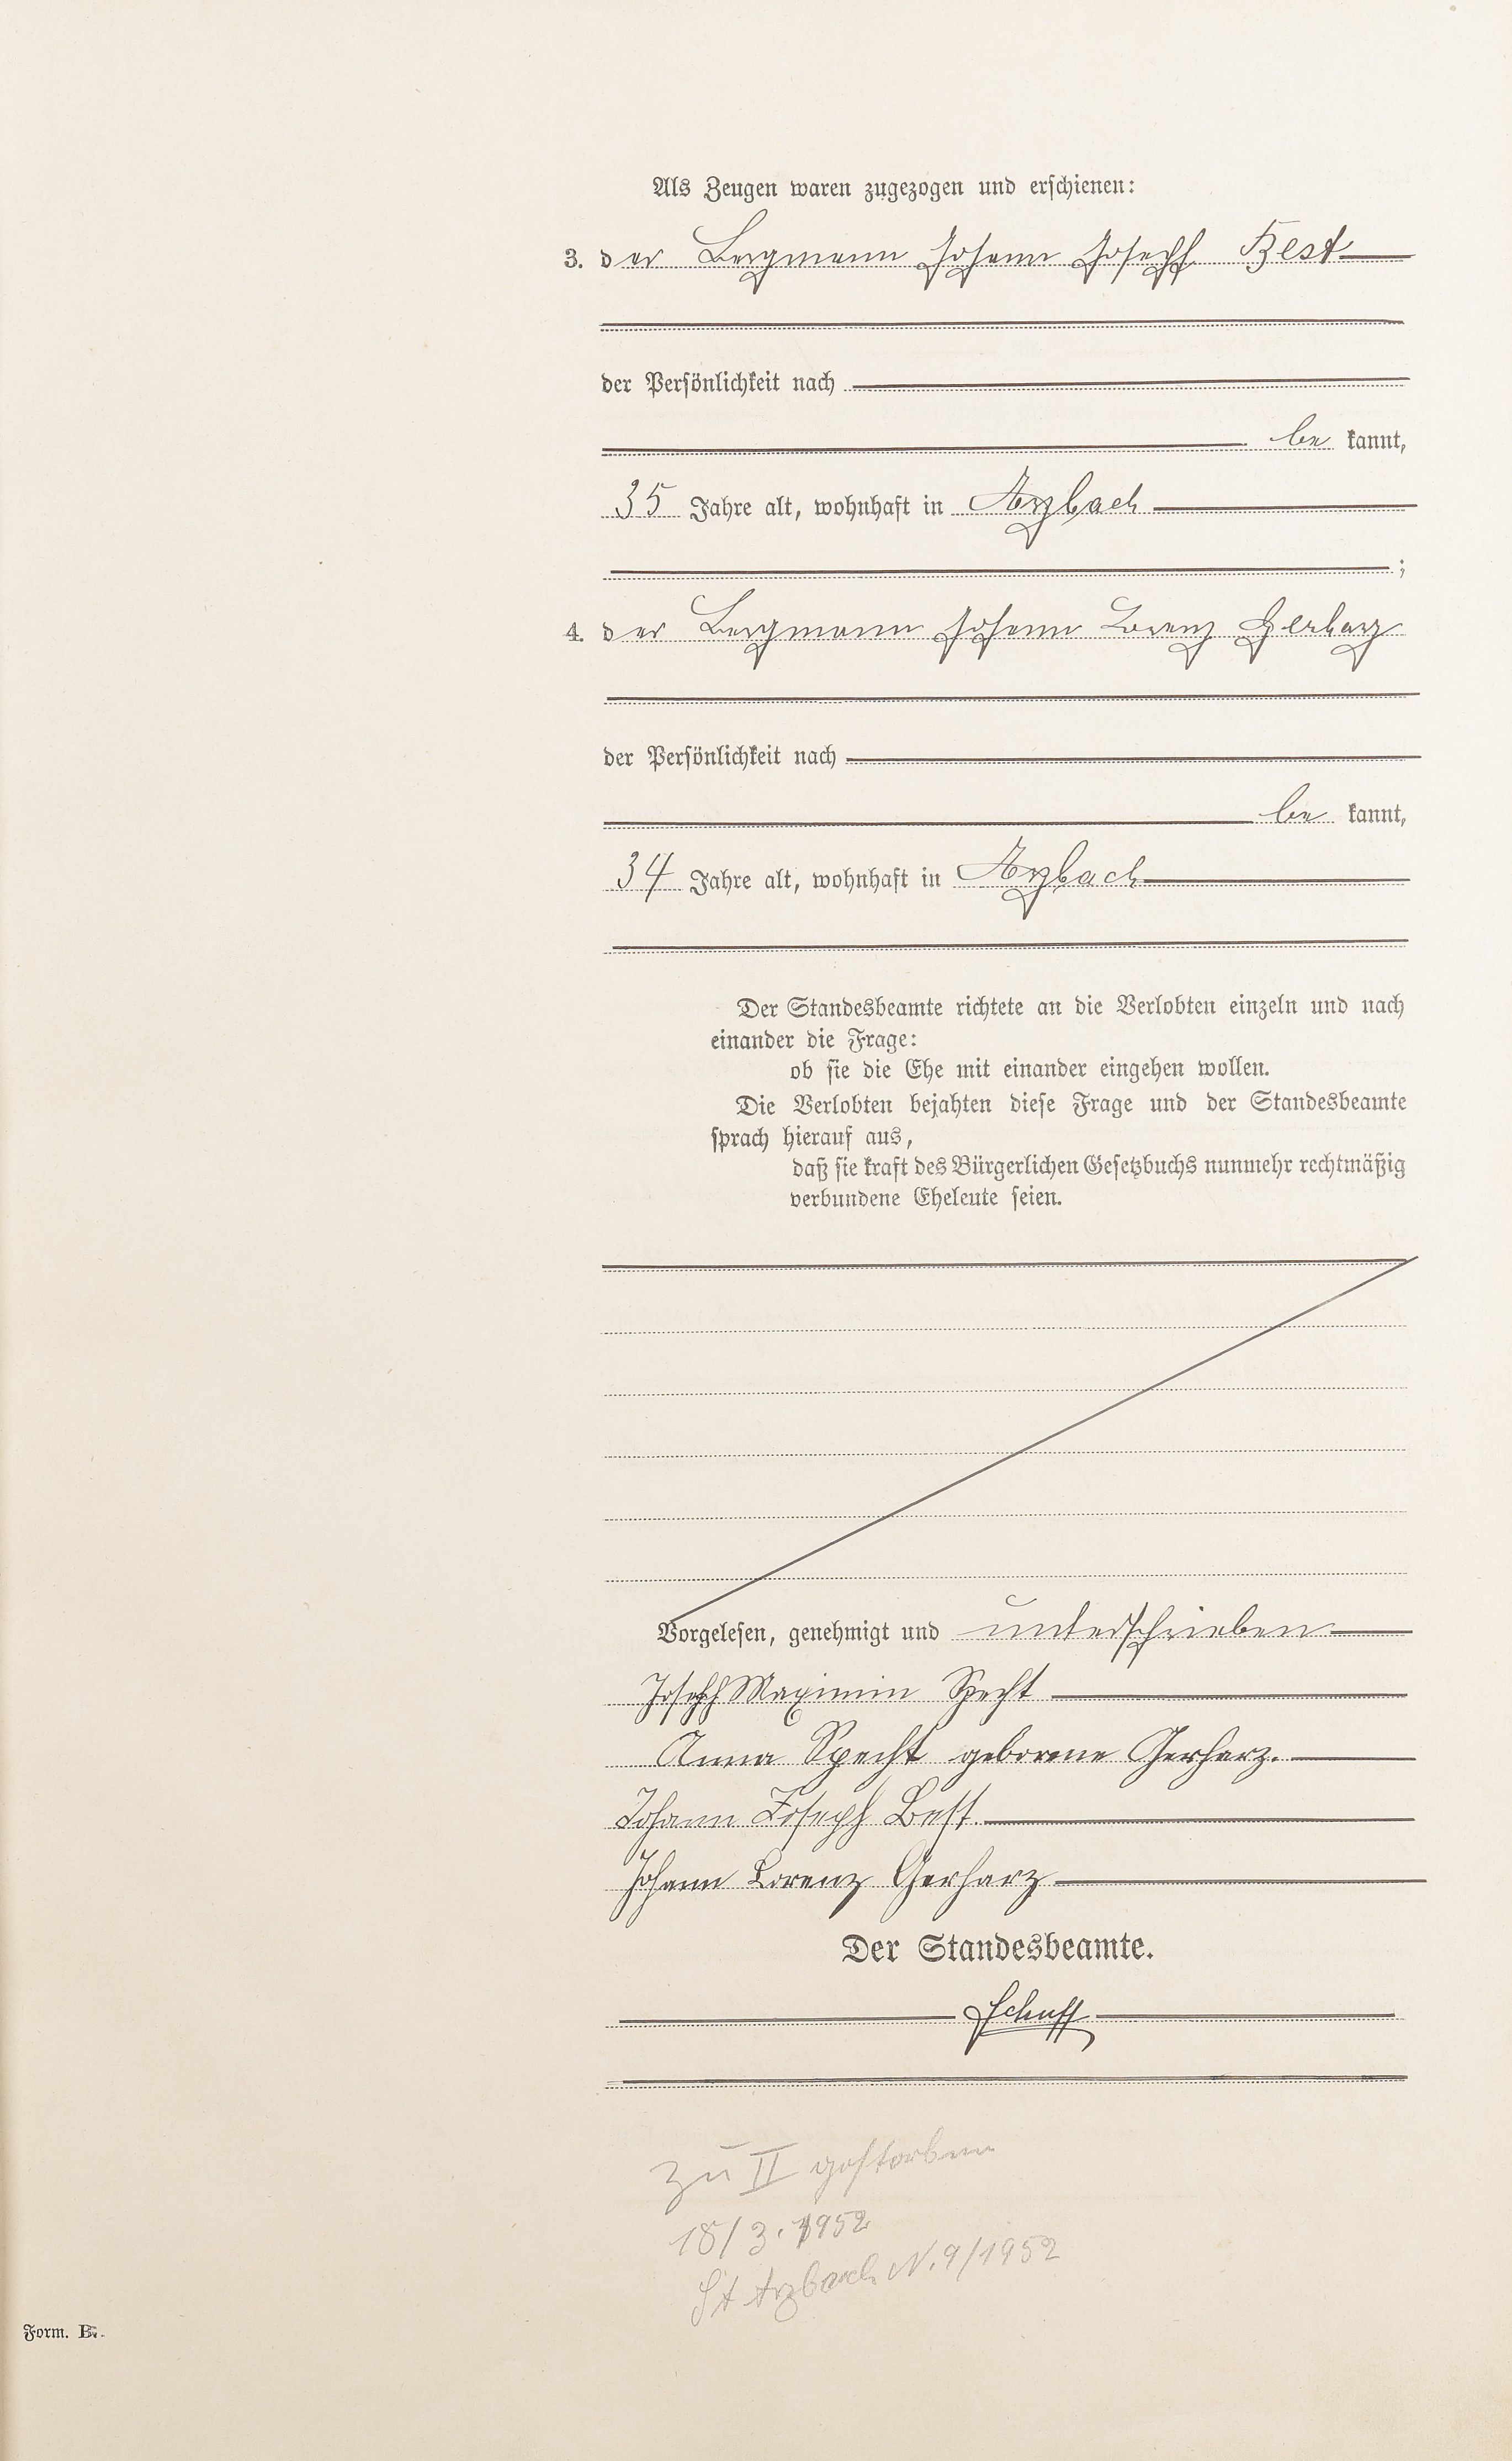 Als Zeugen waren zugezogen und erschienen:
3. der Bergmann Johann Joseph Best
der Persönlichkeit nach
be kannt,
35 Jahre alt, wohnhaft in Arzbach
;
4. der Bergmann Johann Lorenz Gerharz
der Persönlichkeit nach
be kannt,
34 Jahre alt, wohnhaft in Arzbach
Der Standesbeamte richtete an die Verlobten einzeln und nach
einander die Frage:
ob sie die Ehe mit einander eingehen wollen.
Die Verlobten bejahten diese Frage und der Standesbeamte
sprach hierauf aus,
daß sie kraft des Bürgerlichen Gesetzbuchs nunmehr rechtmäßig
verbundene Eheleute seien.
Vorgelesen, genehmigt und unterschrieben
Joseph Maximin Specht
Anna Specht geborene Gerharz.
Johann Joseph Best.
Johann Lorenz Gerharz
Der Standesbeamte.
Schupp
zu II gestorben
18/3. 1952
St Arzbach N. 9/1952
Form. B.